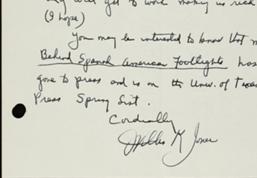 (I hope)
You may be interested to know that m
Behind Spanish American Footlights has
gone to press and is on the Univ. of Texas
Press Spring List.
Cordially
Willis K Jones